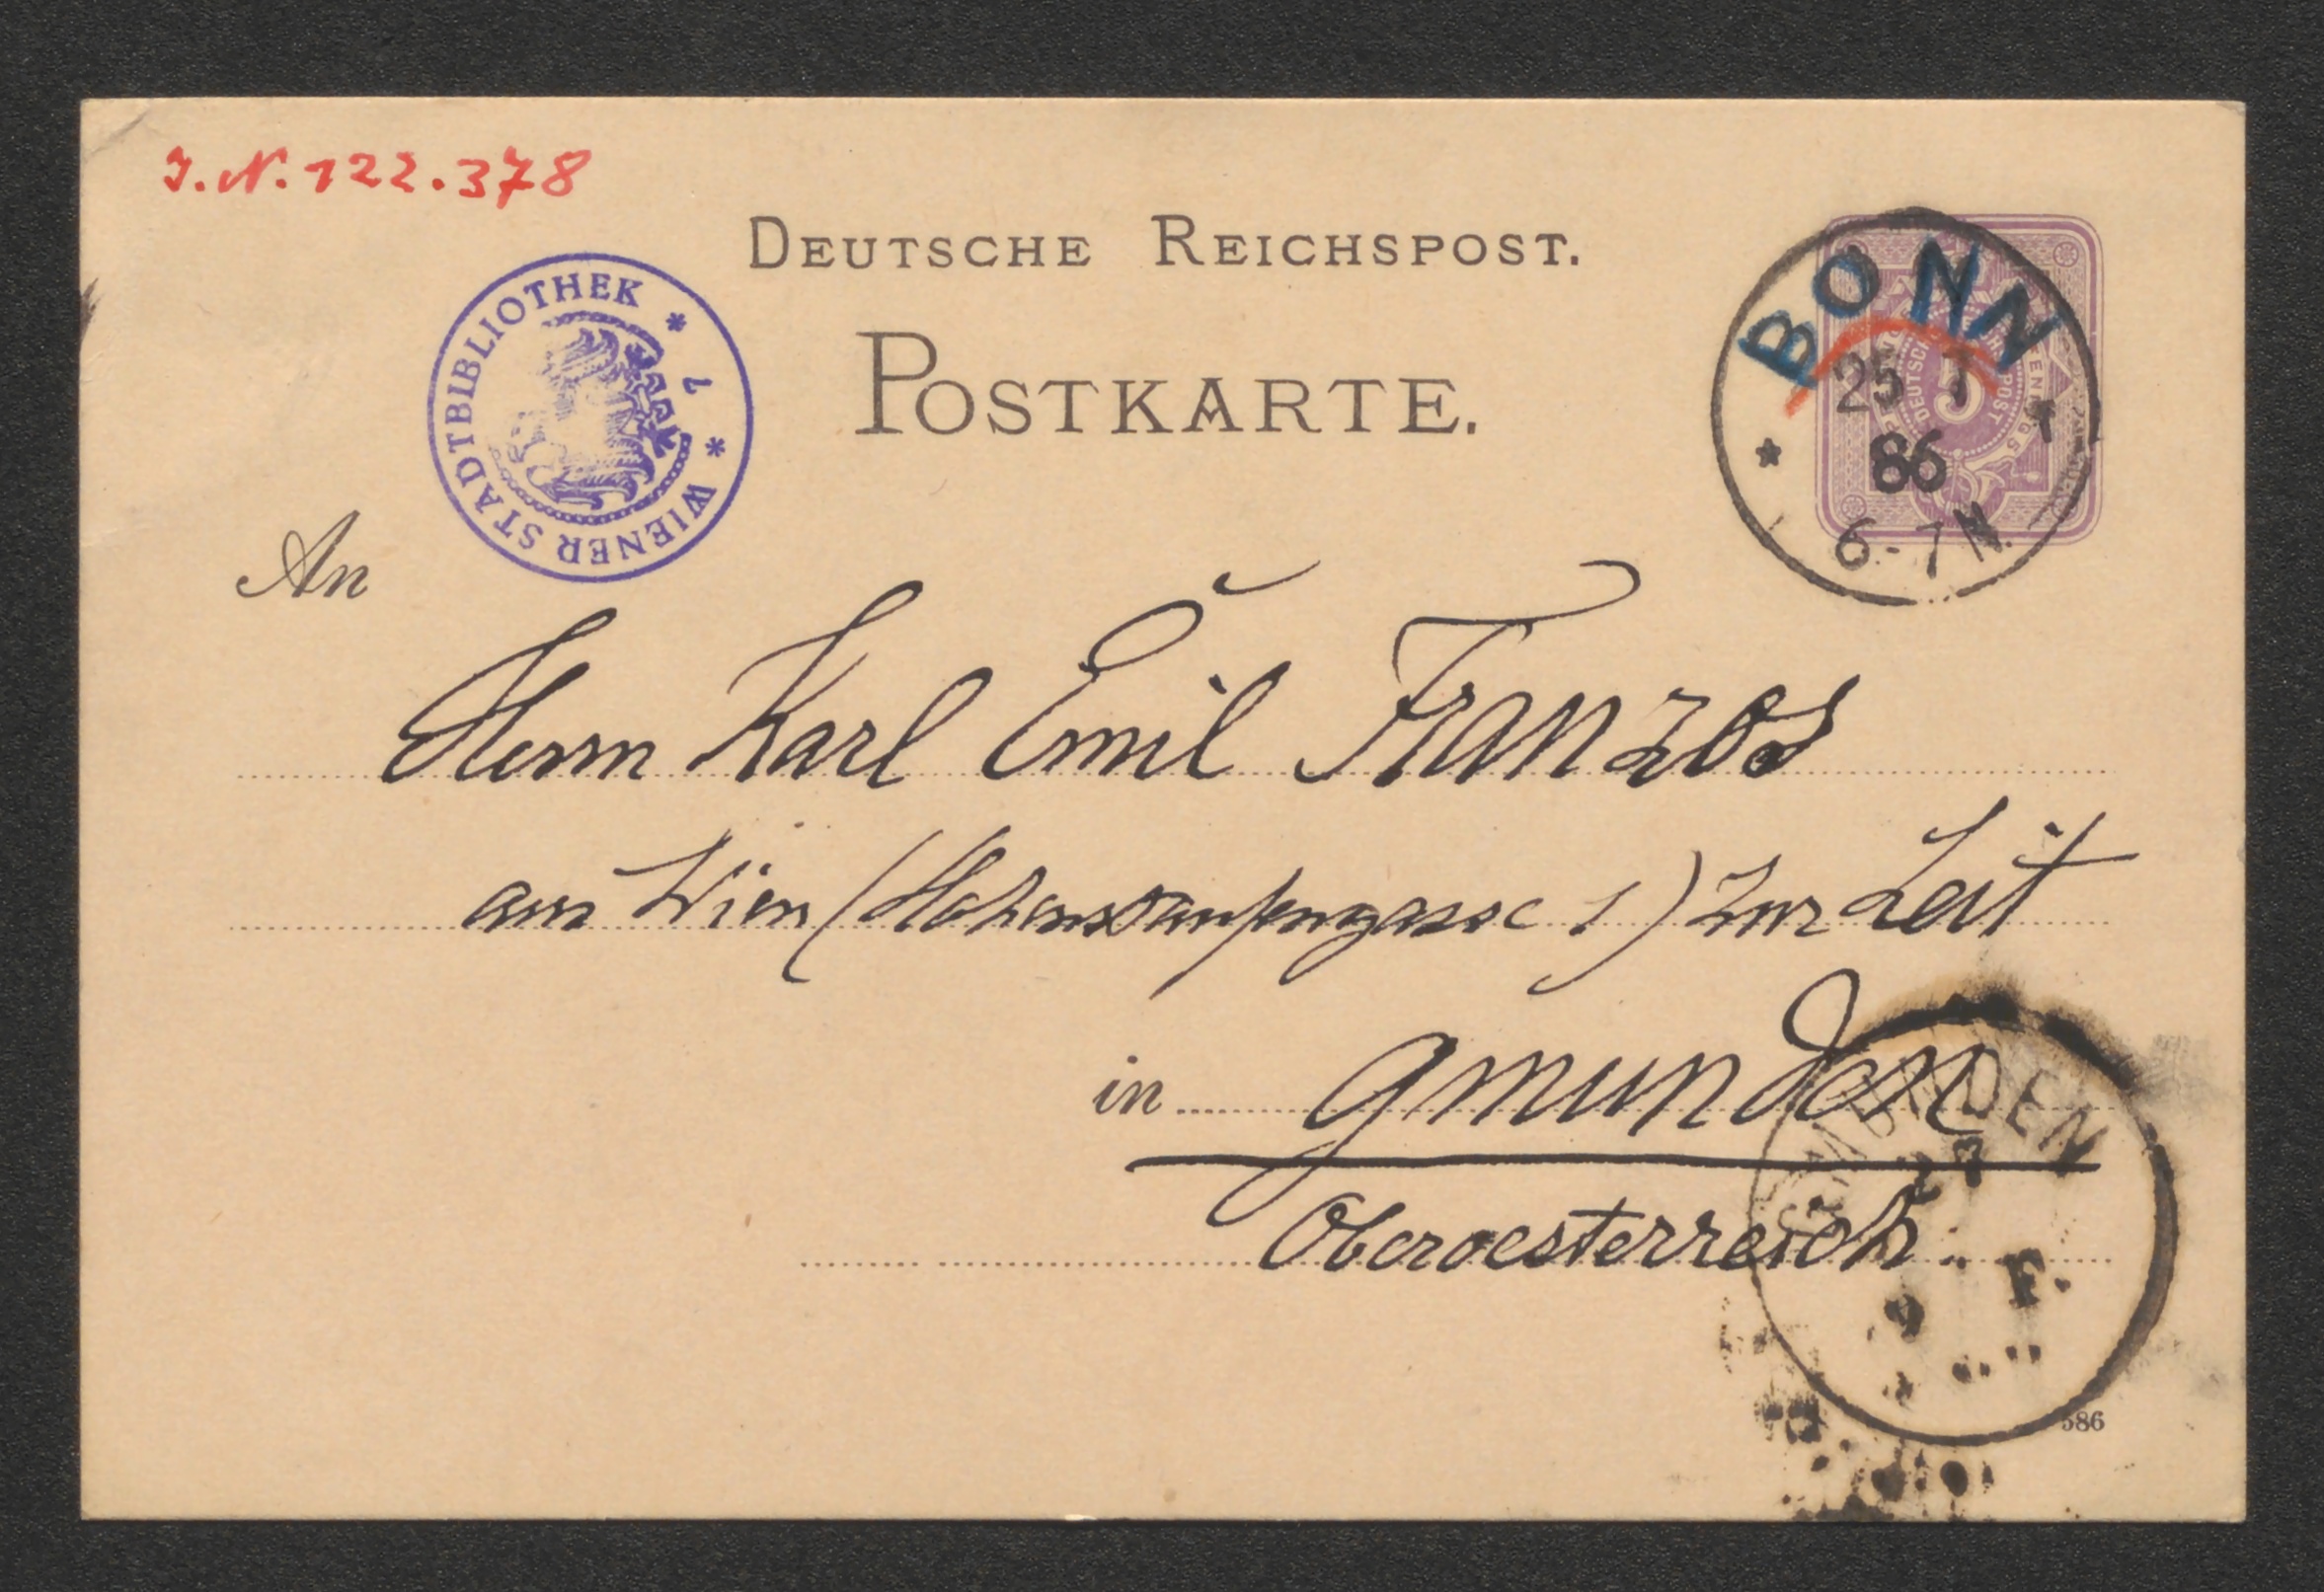 J.N. 122.378
DEUTSCHE REICHSPOST.
POSTKARTE.
WIENER STADTBIBLIOTHEK * 1 *
BONN
25 7
86
6-7N.
An
Herrn Karl Emil Franzos
aus Wien (Hohenstaufengasse 1) Zur Zeit
in Gmunden
Oberoesterreich.
GMUNDEN
27
9 F.
586